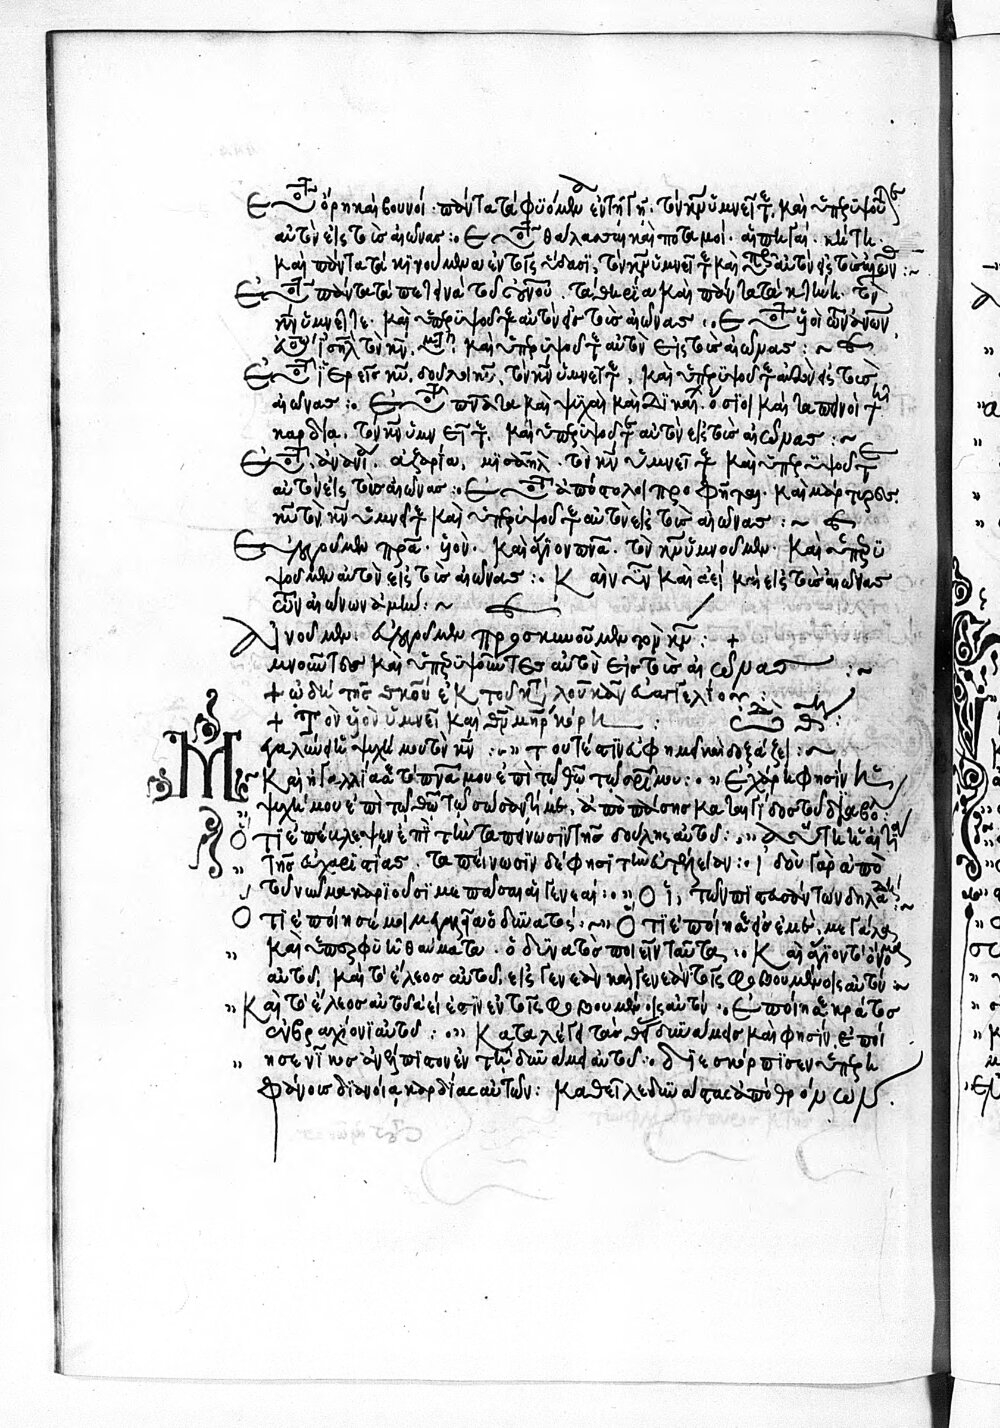 Εὐλογεῖτε ὄρη καὶ βουνοί· πάντα τὰ φυόμενα ἐν τῇ γῇ· τὸν κν ὑμνεῖτε, καὶ ὑπερυψοῦτε
αὐτὸν εἰς τοὺς αἰῶνας :· Εὐλογεῖτε θάλασσαι καὶ ποταμοί· αἱ πηγαί· κήτη·
καὶ πάντα τὰ κινούμενα ἐν τοῖς ὕδασι, τὸν κν ὑμνεῖτε καὶ ὑπερυψοῦτε αὐτὸν εἰς τοὺς αἰῶνας :~
Εὐλογεῖτε πάντα τὰ πετεινὰ τοῦ οὐνοῦ. τὰ θηρία καὶ πάντα τὰ κτήνη· τὸν
κν ὑμνεῖτε· καὶ ὑπερυψοῦτε αὐτὸν εἰς τοὺς αἰῶνας :· Εὐλογεῖτε υἱοὶ τῶν ἀνων,
ἰσηλ τὸν κν. καὶ ὑπερυψοῦτε αὐτὸν εἰς τοὺς αἰῶνας : ~
Εὐλογεῖτε ἱερεῖς κυ, δοῦλοι κυ, τὸν κν ὑμνεῖτε, καὶ ὑπερυψοῦτε αὐτὸν εἰς τοὺς
αἰῶνας :· Εὐλογεῖτε πνατα καὶ ψυχαὶ καὶ δικαίων. ὅσιοι καὶ ταπεινοὶ τῇ
καρδία. τὸν κν ὑμνεῖτε, καὶ ὑπερυψοῦτε αὐτὸν εἰς τοὺς αἰῶνας : ~
Εὐλογεῖτε ἀνανία. ἀζαρία, μισαήλ. τὸν κν ὑμνεῖτε καὶ ὑπερυψοῦτε
αὐτὸν εἰς τοὺς αἰῶνας :· Εὐλογεῖτε ἀπόστολοι προφῆται. καὶ μάρτυρες
κυ τὸν κν ὑμνεῖτε καὶ ὑπερυψοῦτε αὐτὸν εἰς τοὺς αἰῶνας : ~
Εὐλογοῦμεν πρα. υἱόν. καὶ ἅγιον πνα. τὸν κν ὑμνοῦμεν. καὶ ὑπερυ
ψοῦμεν αὐτὸν εἰς τοὺς αἰῶνας :· Καὶ νῦν καὶ ἀεὶ καὶ εἰς τοὺς αἰῶνας
τῶν αἰώνων ἀμήν : ~
Αἰνοῦμεν εὐλογοῦμεν προσκυνοῦμεν τὸν κν : +
μνοῦντες καὶ ὑπερυψοῦντες αὐτὸν εἰς τοὺς αἰῶνας : ~
+ ὠδὴ τῆς θκου ἐκ τοῦ κατὰ λουκᾶν εὐαγγελίου :
+ Τὸν υἱὸν ὑμνεῖ καὶ θν μηρ κόρη : ὠδὴ θ :
Μεγαλύνει ἡ ψυχή μου τὸν κν : ·" τουτέστιν εὐφημεῖ καὶ δοξάζει : ~
Καὶ ἠγαλλίασε τὸ πνα μου ἐπὶ τῷ θω τῷ σρι μου :· " Ἐχάρη φησὶν ἡ
ψυχή μου ἐπὶ τῷ θω τῷ σώσαντί με, ἀπὸ πάσης καταγίδος τοῦ διαβό
Ὅτι ἐπέβλεψεν ἐπὶ τὴν ταπείνωσιν τῆς δούλης αὐτοῦ :· " Αὕτη ἡ αἰτία
τῆς εὐχαριστίας. ταπείνωσιν δέ φησι τὴν εὐτέλειαν :· Ἰδοὺ γὰρ ἀπὸ
τοῦ νῦν μακαριοῦσί με πᾶσαι αἱ γενεαί :· " Οἱ, τῶν πιστῶν τῶν δηλα :~
Ὅτι ἐποίησέ μοι μεγαλεῖα ὁ δυνατός : ~ " Ὅτι ἐποίησεν εἰς ἐμὲ, μεγάλα
καὶ ὑπερφυῆ θαύματα· ὁ δυνατὸς ποιεῖν ταῦτα :· Καὶ ἅγιον τὸ ὄνομα
αὐτοῦ, καὶ τὸ ἔλεος αὐτοῦ, εἰς γενεὰν καὶ γενεὰν τοῖς φοβουμένοις αὐτόν :~
Καὶ τὸ ἔλεος αὐτοῦ ἀεὶ ἐστὶν ἐν τοῖς φοβουμένοις αὐτόν :· Ἐποίησε κράτος
ἐν βραχίονι αὐτοῦ :· " Καταλέγει τὰς θυ δυνάμεις καὶ φησὶν, ἐποί
ησε νίκος ἀνθίστιον ἐν τῇ δυνάμει αὐτοῦ :· Διεσκόρπισεν ὑπερη
φάνους διανοίᾳ καρδίας αὐτῶν : καθεῖλε δυνάστας ἀπὸ θρόνων.